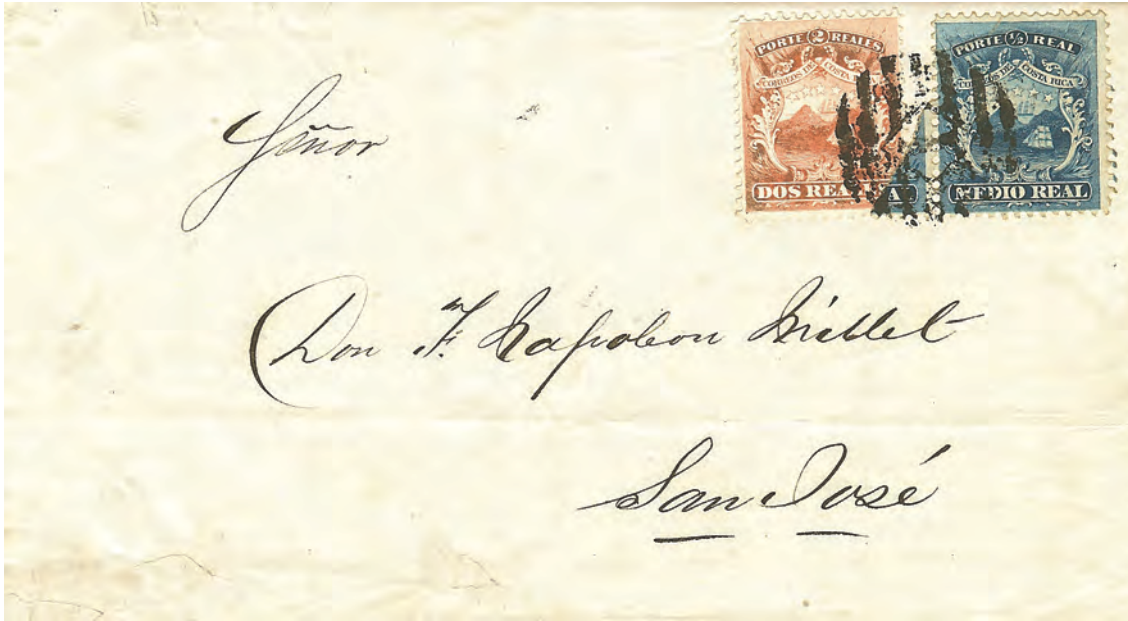 PORTE 2 REALES
CORREOS DE COSTA
DOS REA
PORTE ½ REAL
COSTA RICA
MEDIO REAL
Señor
Don F. Napoleon Millet
San José